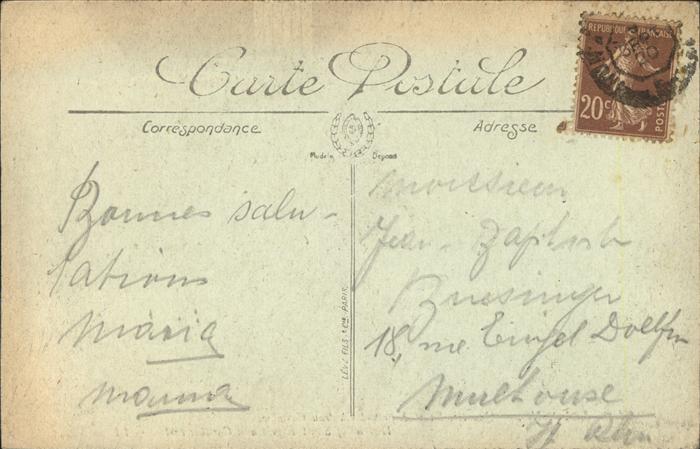 Carte Postale
RÉPUBLIQUE FRANÇAISE
20c
POSTES
Correspondance
Adresse
Modèle Déposé
Bonnes salu-
tations
Maria
mama
LÉVY FILS & Cie PARIS
Monsieur
Jean-Baptiste
18, rue Engel Dollfus
Mulhouse
Ht Rhin